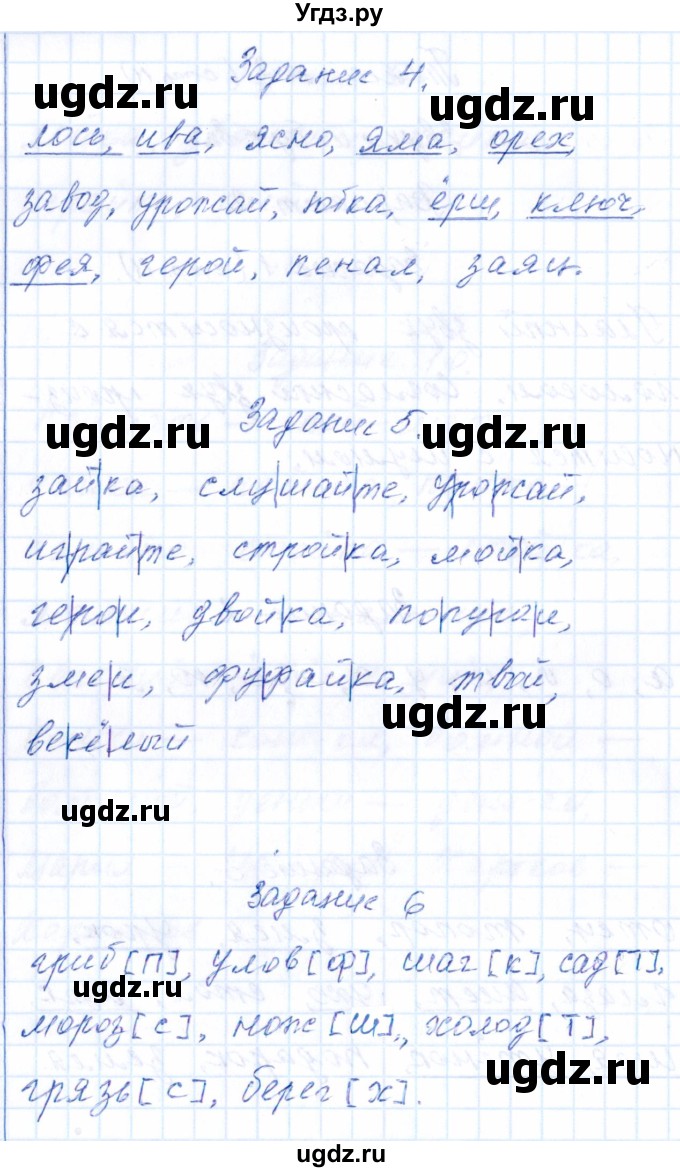 Угдз.ру
Задание 4.
ugdz.ru ugdz.ru
лось, ива, ясно, яма, орех,
завод, урожай, юбка, ёрш, ключ,
фея, герой, пенал, заяц.
Задание 5.
ugdz.ru ugdz.ru
зай|ка, слу|шай|те, у|ро|жай,
иг|рай|те, строй|ка, мой|ка,
ге|ро|и, двой|ка, по|пу|га|и,
зме|и, фу|фай|ка, твой,
ugdz.ru
ве|сё|лый
ugdz.ru
Задание 6
гриб [П], улов [ф], шаг [к], сад [Т],
ugdz.ru
мороз [с], нож [ш], холод [Т],
ugdz.ru
грязь [с], берег [х].
ugdz.ru